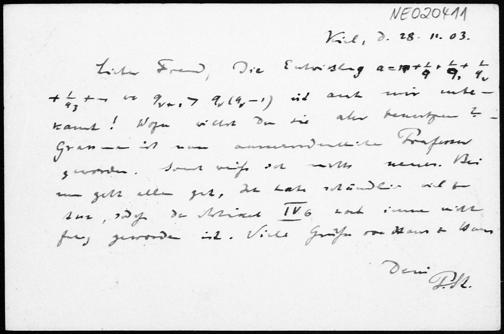 NE020411
Kiel, d. 28. 11. 03.
Lieber Freund, Die Entwicklung a = n + 1/q + 1/q₁ + 1/q₂
+ 1/q₃ + ... wo qᵥ₊₁ > qᵥ(qᵥ-1) ist auch mir unbe-
kannt! Wozu willst Du sie aber benutzen?
ist nun ausserordentlicher Professor
geworden. Sonst weiss ich nichts neues. Bei
uns geht alles gut, ich habe schändlich viel zu
tun, sodass der Artikel IV 6 noch immer nicht
fertig geworden ist. Viele Grüsse von Haus zu Haus
Dein
P. St.